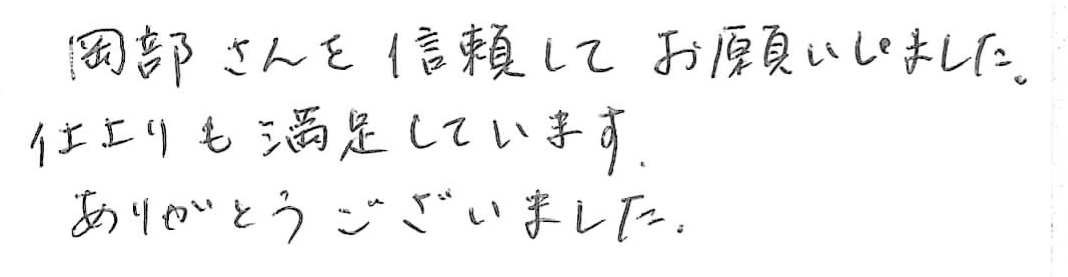 岡部さんを信頼してお願いしました。
仕上りも満足しています.
ありがとうございました.